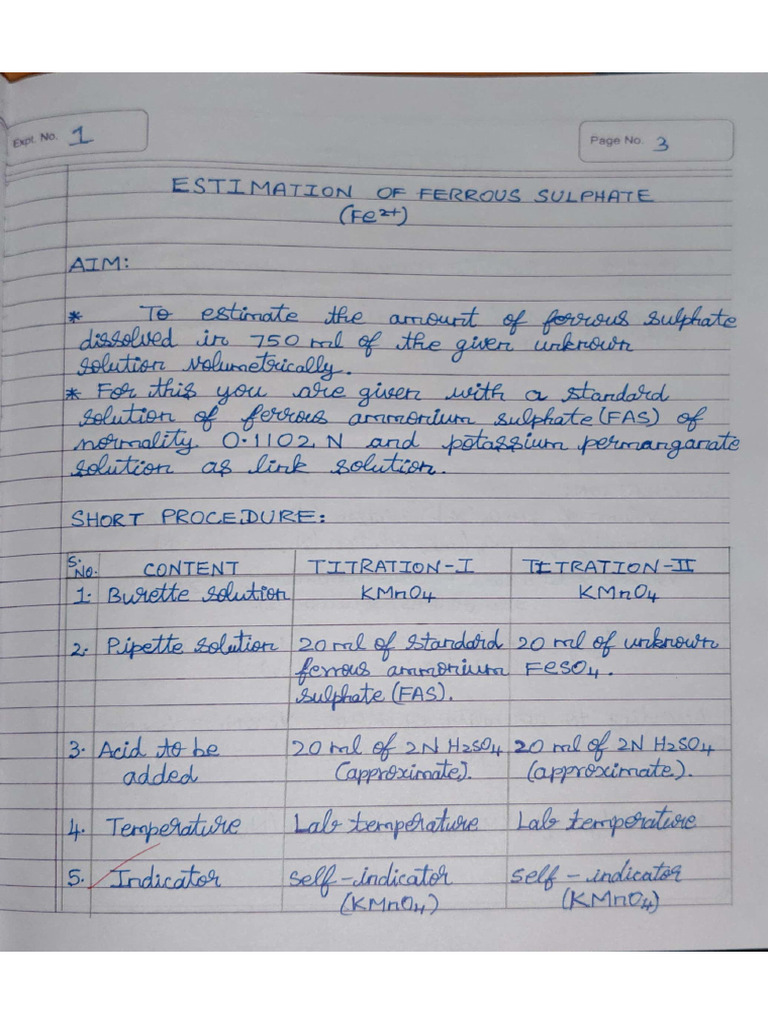 Expt. No. 1
Page No. 3
ESTIMATION OF FERROUS SULPHATE
(Fe²⁺)
AIM:
* To estimate the amount of ferrous sulphate
dissolved in 750 ml of the given unknown
solution volumetrically.
* For this you are given with a standard
solution of ferrous ammonium sulphate (FAS) of
normality 0.1102 N and potassium permanganate
solution as link solution.
SHORT PROCEDURE:
S. No. CONTENT TITRATION-I TITRATION-II
1. Burette solution KMnO4 KMnO4
2. Pipette solution 20 ml of standard 20 ml of unknown
ferrous ammonium FeSO4.
sulphate (FAS).
3. Acid to be 20 ml of 2N H2SO4 20 ml of 2N H2SO4
added (approximate). (approximate).
4. Temperature Lab temperature Lab temperature
5. Indicator self-indicator self-indicator
(KMnO4) (KMnO4)